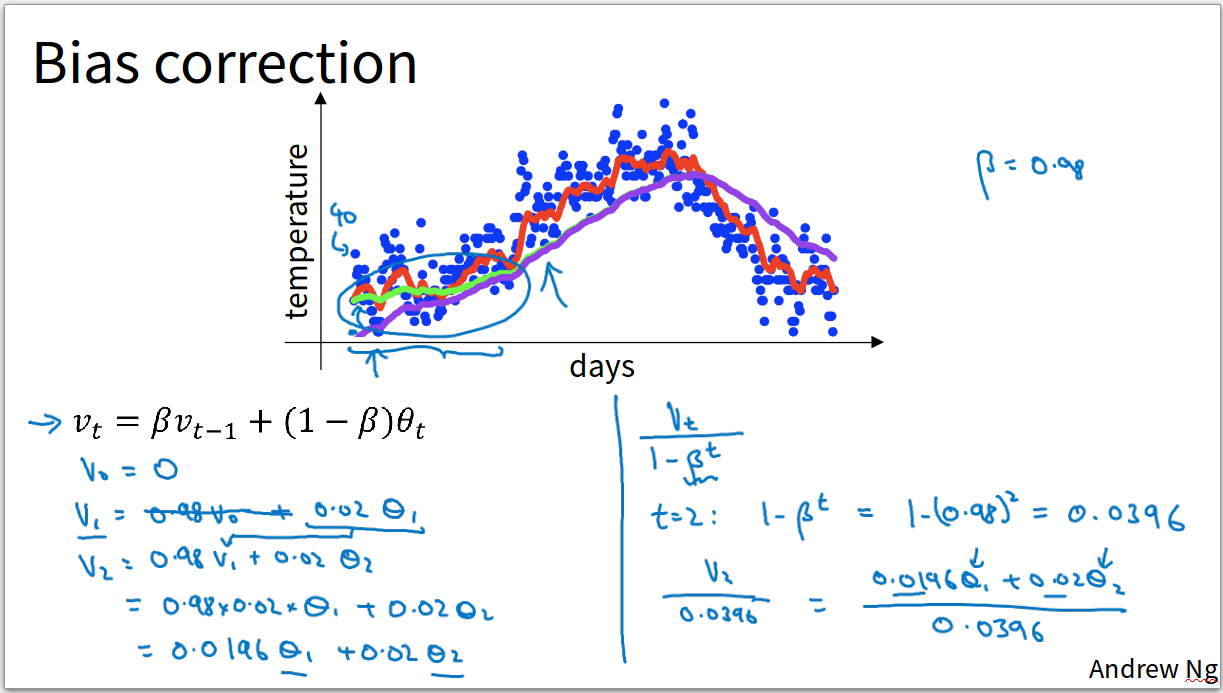 Bias correction
temperature
40
days
β = 0.98
→ vₜ = βvₜ₋₁ + (1 − β)θₜ
V₀ = 0
V₁ = 0.98 V₀ + 0.02 θ₁
V₂ = 0.98 V₁ + 0.02 θ₂
= 0.98 x 0.02 x θ₁ + 0.02 θ₂
= 0.0196 θ₁ + 0.02 θ₂
Vₜ
1 - βᵗ
t=2: 1-βᵗ = 1-(0.98)² = 0.0396
V₂ / 0.0396 = (0.0196 θ₁ + 0.02 θ₂) / 0.0396
Andrew Ng